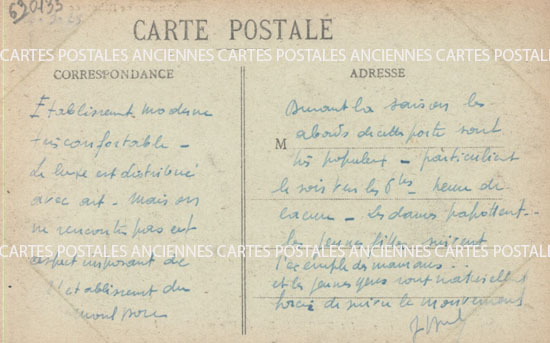 630133
CARTE POSTALE
CARTES POSTALES ANCIENNES CARTES POSTALES ANCIENNES CARTES POSTALES
CORRESPONDANCE
Etablissement moderne
très confortable –
Le luxe est distribué
avec art – Mais on
ne rencontre pas cet
aspect imposant de
l'etablissement du
CARTES POSTALES ANCIENNES CARTES POSTALES ANCIENNES CARTES POSTALES
ADRESSE
M
Durant la saison les
abords de cette poste sont
très populeux – particulièrent
le soir vers les 6 hes – heure du
– les dames papottent –
les jeunes filles suivent
l'exemple des mamans . .
et les jeunes gens sont naturellemt
forcés de suivre le mouvement